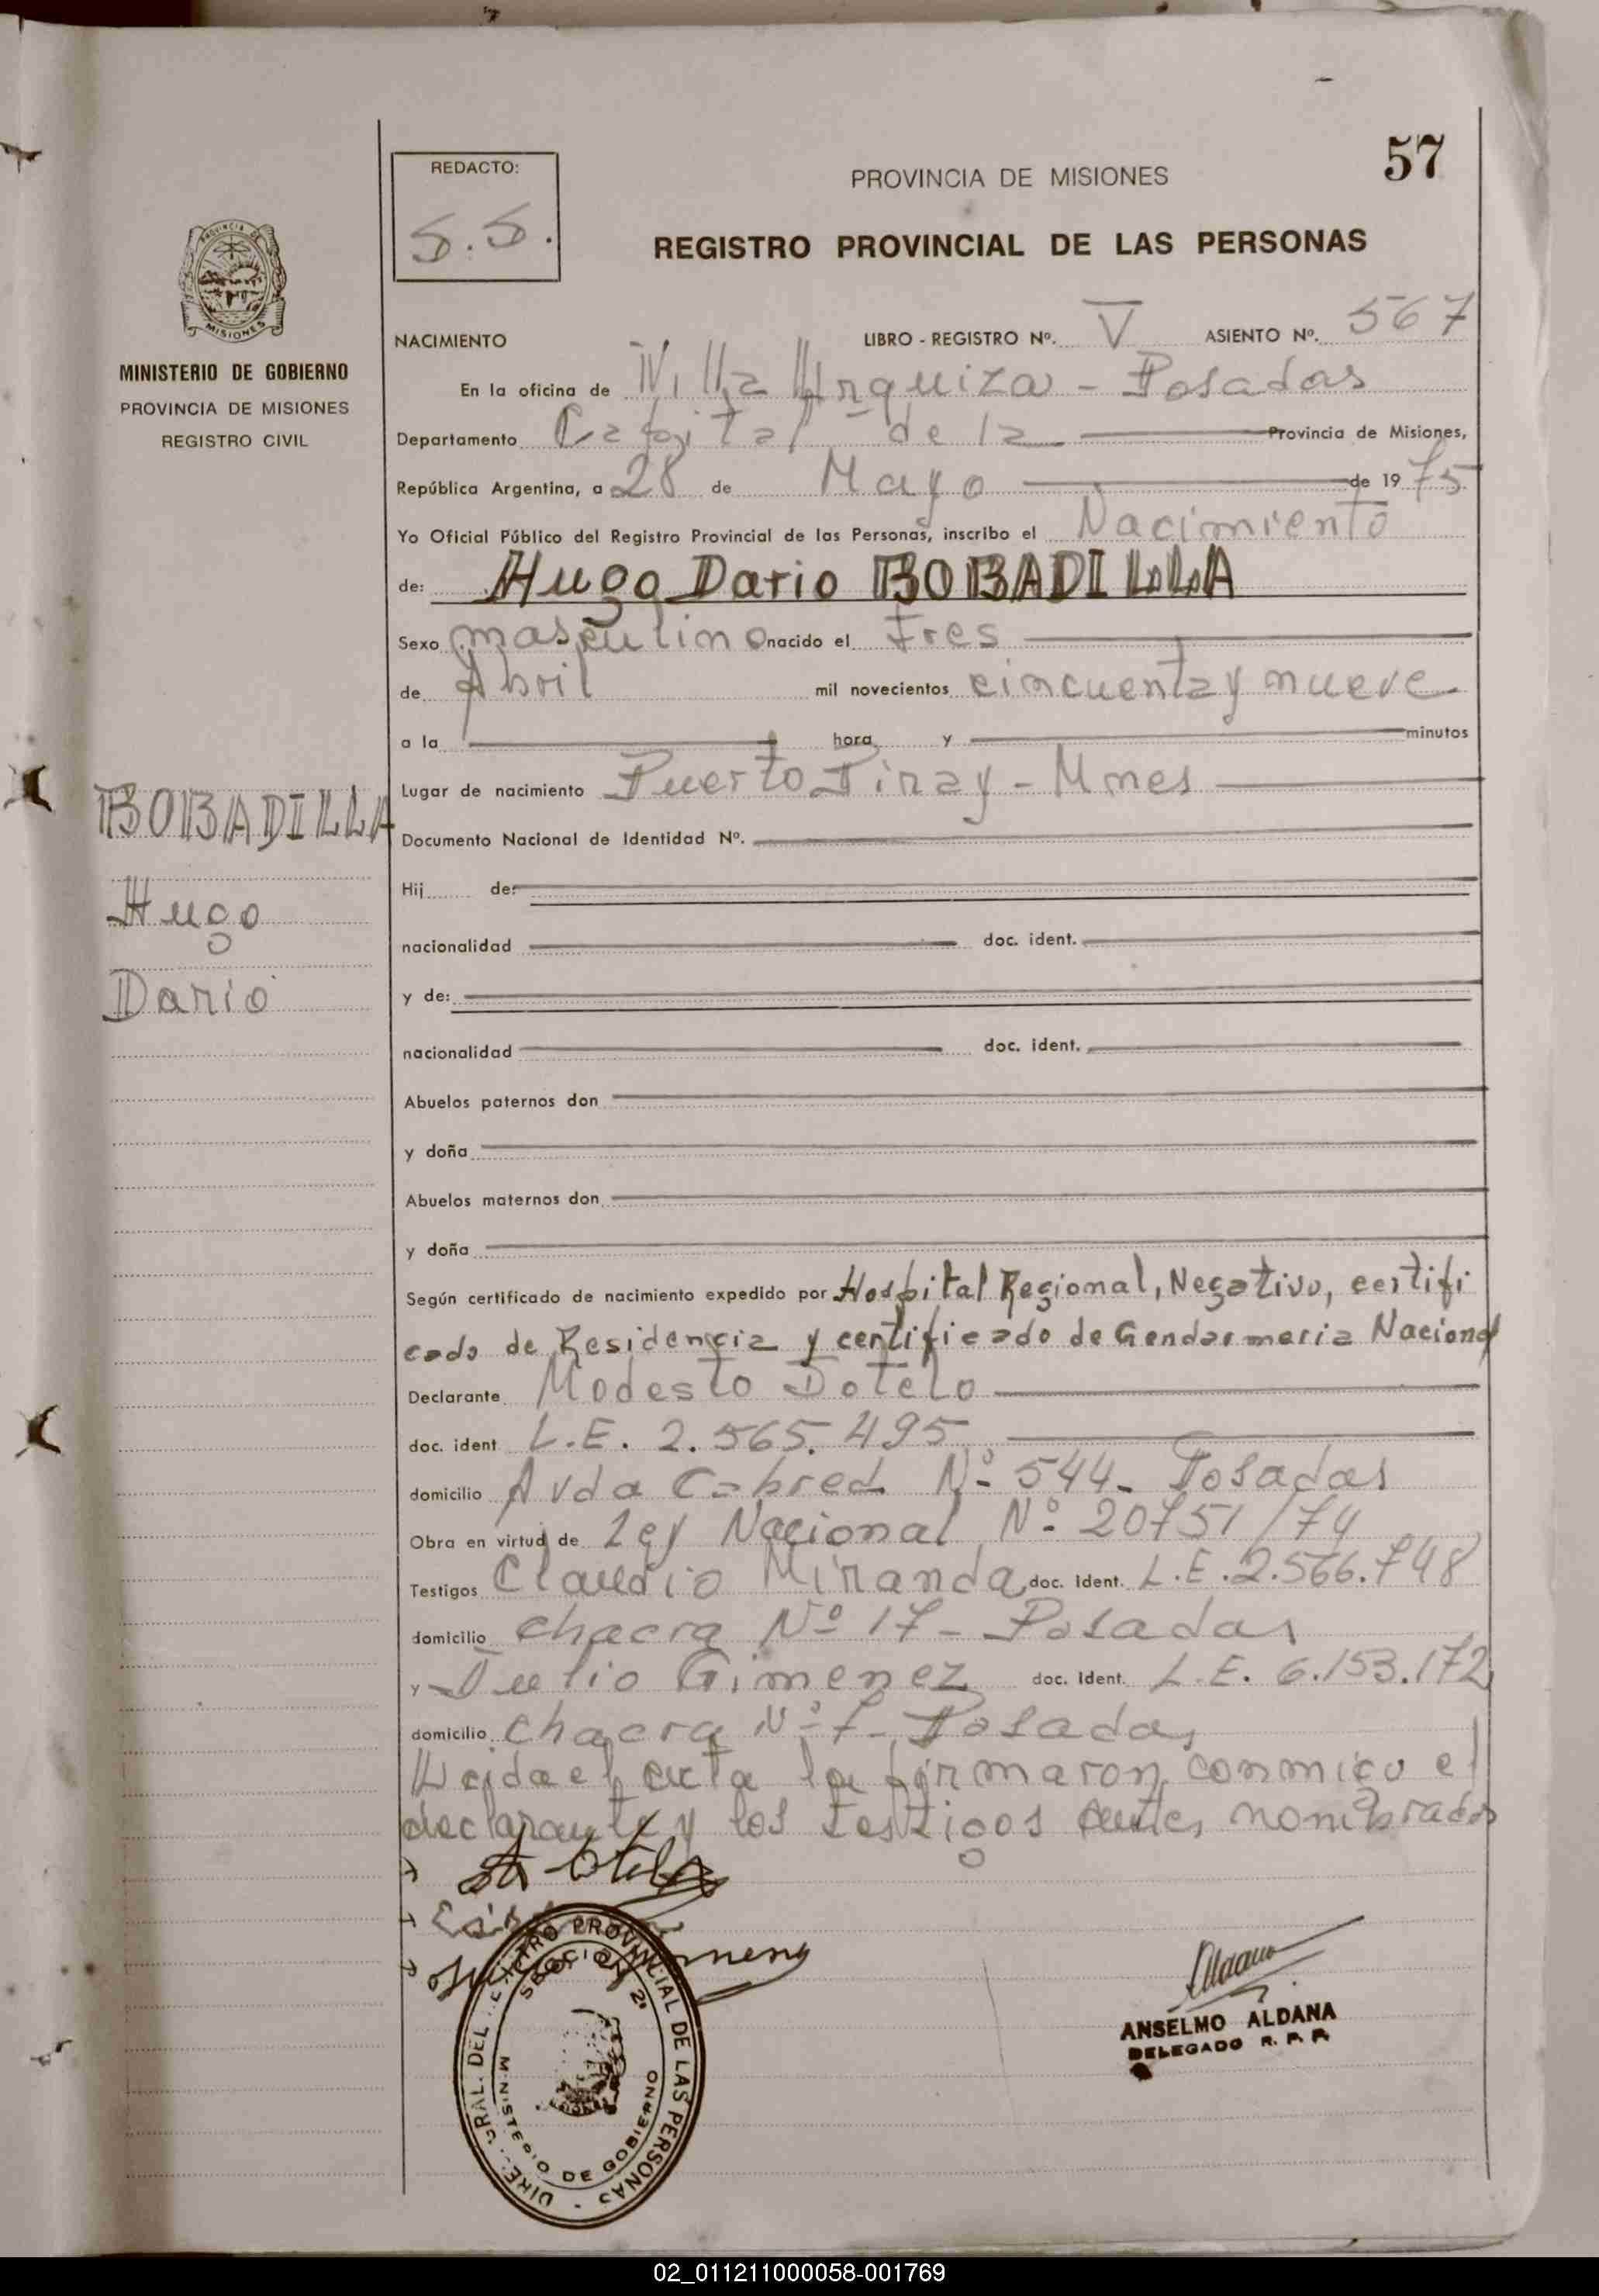 57
REDACTO:
S.S.
PROVINCIA DE MISIONES
REGISTRO PROVINCIAL DE LAS PERSONAS
PROVINCIA DE
MISIONES
MINISTERIO DE GOBIERNO
PROVINCIA DE MISIONES
REGISTRO CIVIL
NACIMIENTO LIBRO - REGISTRO Nº. V ASIENTO Nº. 567
En la oficina de Villa Urquiza - Posadas
Departamento Capital de la Provincia de Misiones,
República Argentina, a 28 de Mayo de 1975
Yo Oficial Público del Registro Provincial de las Personas, inscribo el Nacimiento
de: Hugo Dario BOBADILLA
Sexo masculino nacido el tres
de Abril mil novecientos cincuenta y nueve
a la hora y minutos
Lugar de nacimiento Puerto Piray - Mnes
BOBADILLA
Hugo
Dario
Documento Nacional de Identidad Nº.
Hij de:
nacionalidad doc. ident.
y de:
nacionalidad doc. ident.
Abuelos paternos don
y doña
Abuelos maternos don
y doña
Según certificado de nacimiento expedido por Hospital Regional, Negativo, certifi
cado de Residencia y certificado de Gendarmeria Nacional
Declarante Modesto Sotelo
doc. ident L.E. 2.565.495
domicilio Avda Cabred Nº 544- Posadas
Obra en virtud de Ley Nacional Nº 20751/74
Testigos Claudio Miranda doc. ident. L.E. 2.566.748
domicilio chacra Nº 17- Posadas
y Julio Gimenez doc. ident. L.E. 6.153.172
domicilio chacra Nº 7- Posadas
Leida el acta la firmaron conmigo el
declarante y los testigos antes nombrados
REGISTRO PROVINCIAL DE LAS PERSONAS
SECCION 2ª
MINISTERIO DE GOBIERNO
ANSELMO ALDANA
DELEGADO R. P. P.
02_011211000058-001769